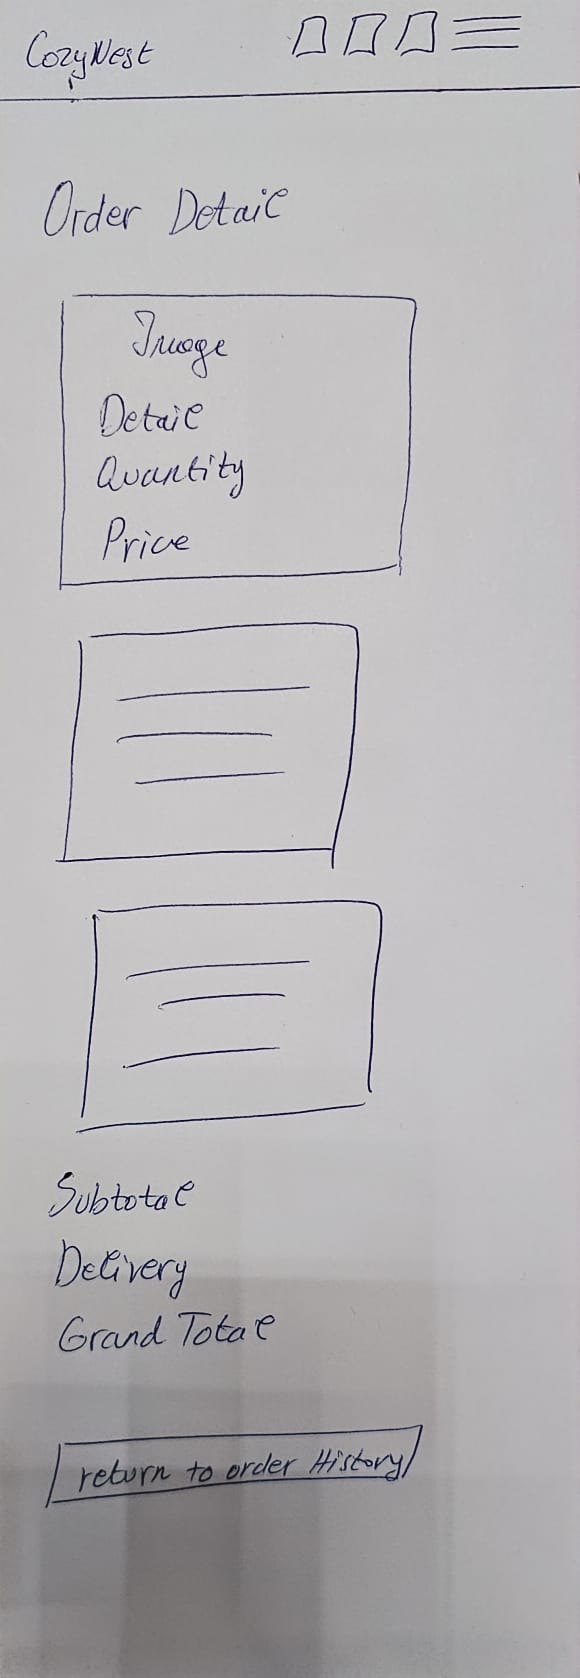 CozyNest
Order Detail
Image
Detail
Quantity
Price
Subtotal
Delivery
Grand Total
return to order History